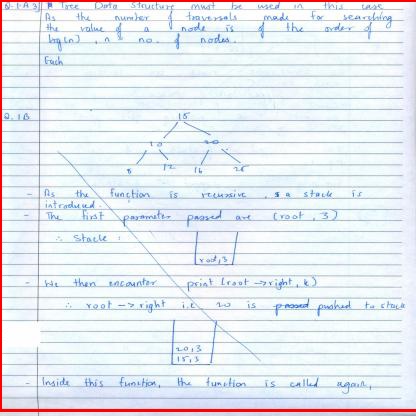 Q.1.A 3] Tree Data Structure must be used in this case
As the number of traversals made for searching
the value of a node is of the order of
log(n), n = no. of nodes.
Each
Q.1B
15
10 20
8 12 16 25
- As the function is recursive, a stack is
introduced.
- The first parameter passed are (root, 3)
∴ Stack :
root, 3
- We then encounter print (root -> right, k)
∴ root -> right i.e 20 is passed pushed to stack
20, 3
15, 3
- Inside this function, the function is called again,